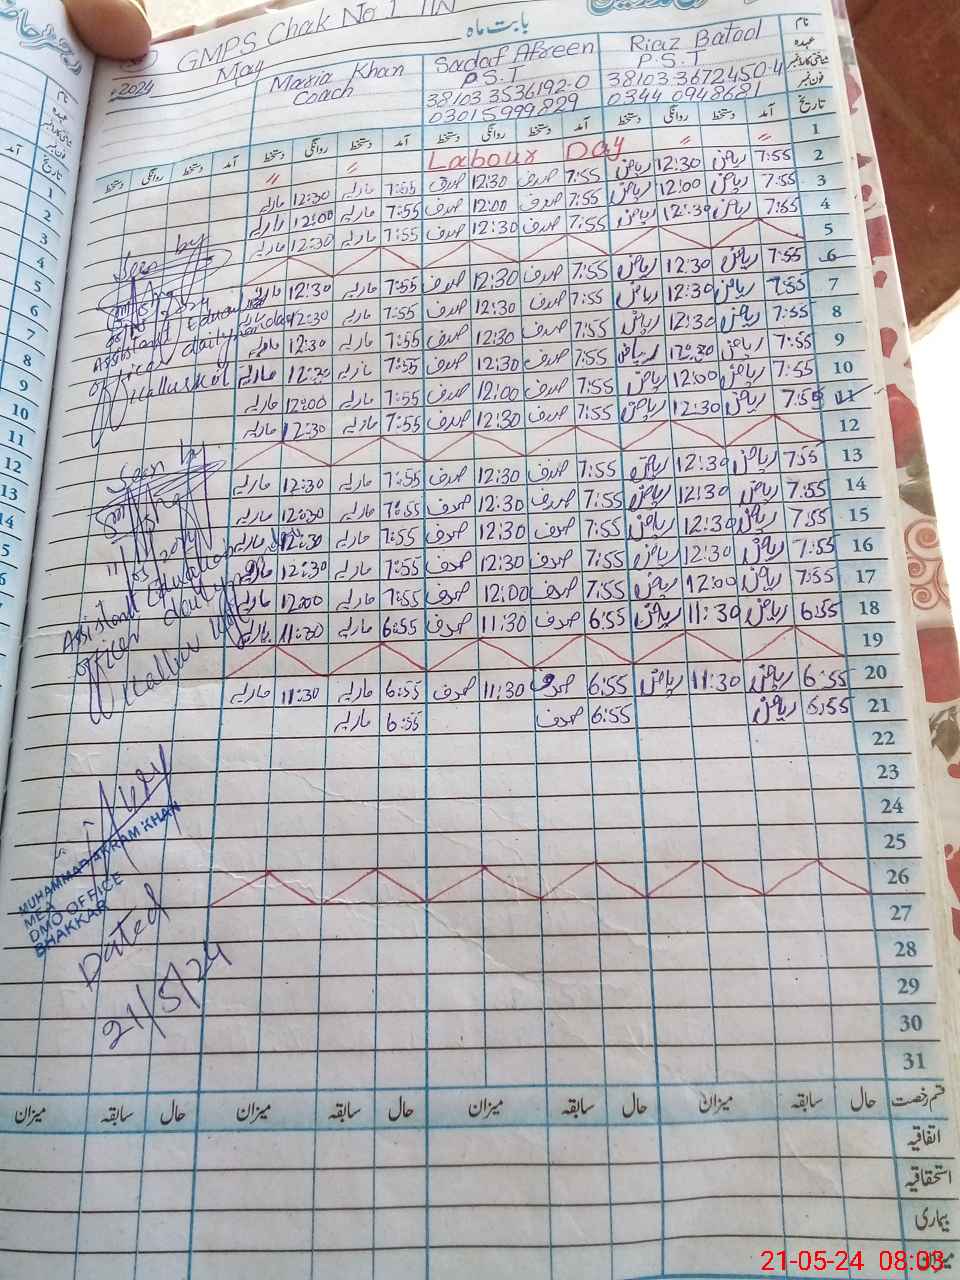 GMPS Chak No 1 TN
بابت ماہ
May
2024
Maria Khan
Coach
Sadaf Afreen
P.S.T
38103 3536192-0
03015999829
Riaz Batool
P.S.T
38103 3672450-4
0344 0948681
نام
عہدہ
شناختی کارڈ نمبر
فون نمبر
تاریخ
آمد دستخط روانگی دستخط آمد دستخط روانگی دستخط آمد دستخط روانگی دستخط آمد دستخط روانگی دستخط
1 〃 〃 Labour Day 〃 〃
2 7:55 ریاض 12:30 ریاض 7:55 صدف 12:30 صدف 7:55 ماریہ 12:30 ماریہ
3 7:55 ریاض 12:00 ریاض 7:55 صدف 12:00 صدف 7:55 ماریہ 12:00 ماریہ
4 7:55 ریاض 12:30 ریاض 7:55 صدف 12:30 صدف 7:55 ماریہ 12:30 ماریہ
5
6 7:55 ریاض 12:30 ریاض 7:55 صدف 12:30 صدف 7:55 ماریہ 12:30 ماریہ
7 7:55 ریاض 12:30 ریاض 7:55 صدف 12:30 صدف 7:55 ماریہ 12:30
8 7:55 ریاض 12:30 ریاض 7:55 صدف 12:30 صدف 7:55 ماریہ 12:30 ماریہ
9 7:55 ریاض 12:30 ریاض 7:55 صدف 12:30 صدف 7:55 ماریہ 12:30 ماریہ
10 7:55 ریاض 12:00 ریاض 7:55 صدف 12:00 صدف 7:55 ماریہ 12:00 ماریہ
11 7:55 ریاض 12:30 ریاض 7:55 صدف 12:30 صدف 7:55 ماریہ 12:30 ماریہ
12
13 7:55 ریاض 12:30 ریاض 7:55 صدف 12:30 صدف 7:55 ماریہ 12:30 ماریہ
14 7:55 ریاض 12:30 ریاض 7:55 صدف 12:30 صدف 7:55 ماریہ 12:30 ماریہ
15 7:55 ریاض 12:30 ریاض 7:55 صدف 12:30 صدف 7:55 ماریہ 12:30
16 7:55 ریاض 12:30 ریاض 7:55 صدف 12:30 صدف 7:55 ماریہ 12:30 ماریہ
17 7:55 ریاض 12:00 ریاض 7:55 صدف 12:00 صدف 7:55 ماریہ 12:00 ماریہ
18 6:55 ریاض 11:30 ریاض 6:55 صدف 11:30 صدف 6:55 ماریہ 11:30 ماریہ
19
20 6:55 ریاض 11:30 ریاض 6:55 صدف 11:30 صدف 6:55 ماریہ 11:30 ماریہ
21 6:55 ریاض 6:55 صدف 6:55 ماریہ
22
23
24
25
26
27
28
29
30
31
Seen by
Assistant Education
officer
Kallurkot
Seen by
Assistant Education
officer
Kallur Kot
MUHAMMAD AKRAM KHAN
MEA
DMO OFFICE
BHAKKAR
Dated
21/5/24
قسم رخصت حال سابقہ میزان حال سابقہ میزان حال سابقہ میزان حال سابقہ میزان
اتفاقیہ
استحقاقیہ
بیماری
میزان
21-05-24 08:03